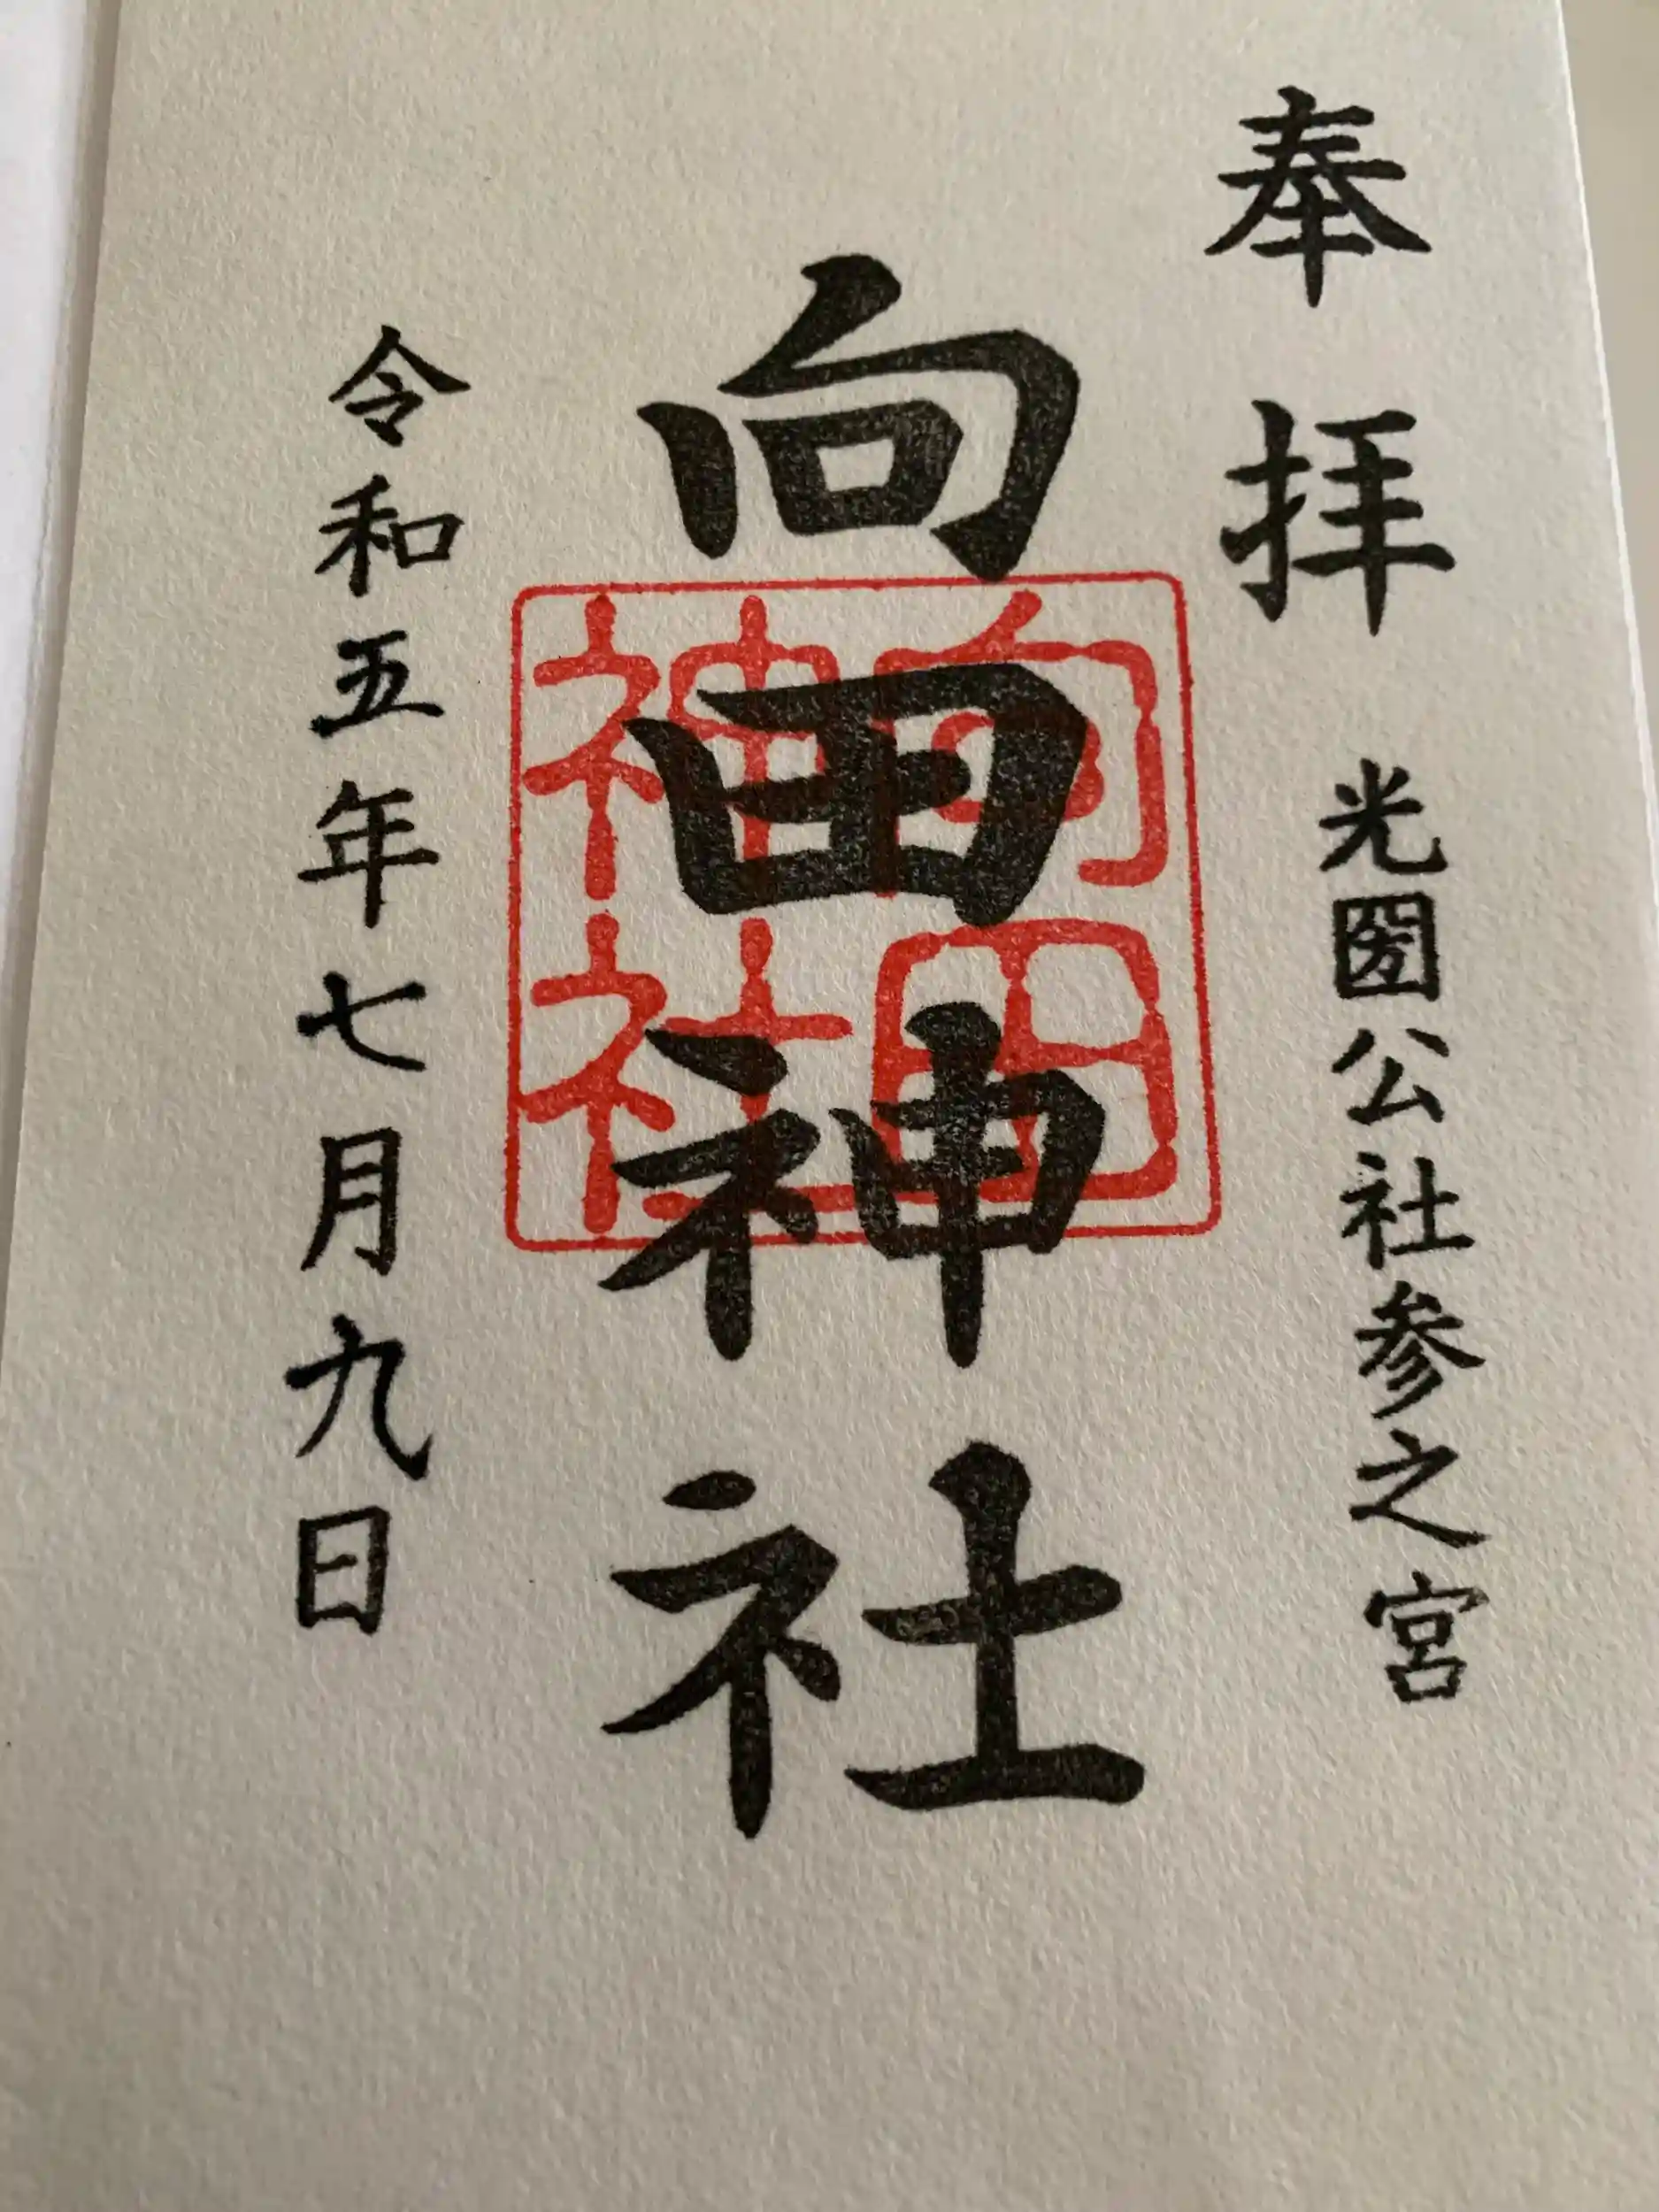 奉拝 光圀公社参之宮
向田神社
向田
神社
令和五年七月九日